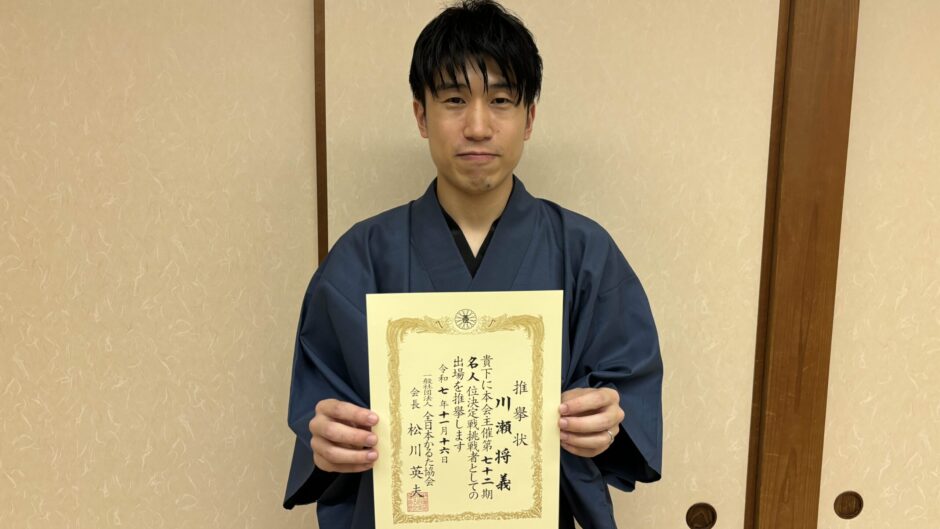 推挙状
川瀬将義
貴下に本会主催第七十二期
名人位決定戦挑戦者としての
出場を推挙します
令和七年十一月十六日
一般社団法人 全日本かるた協会
会長 松川英夫